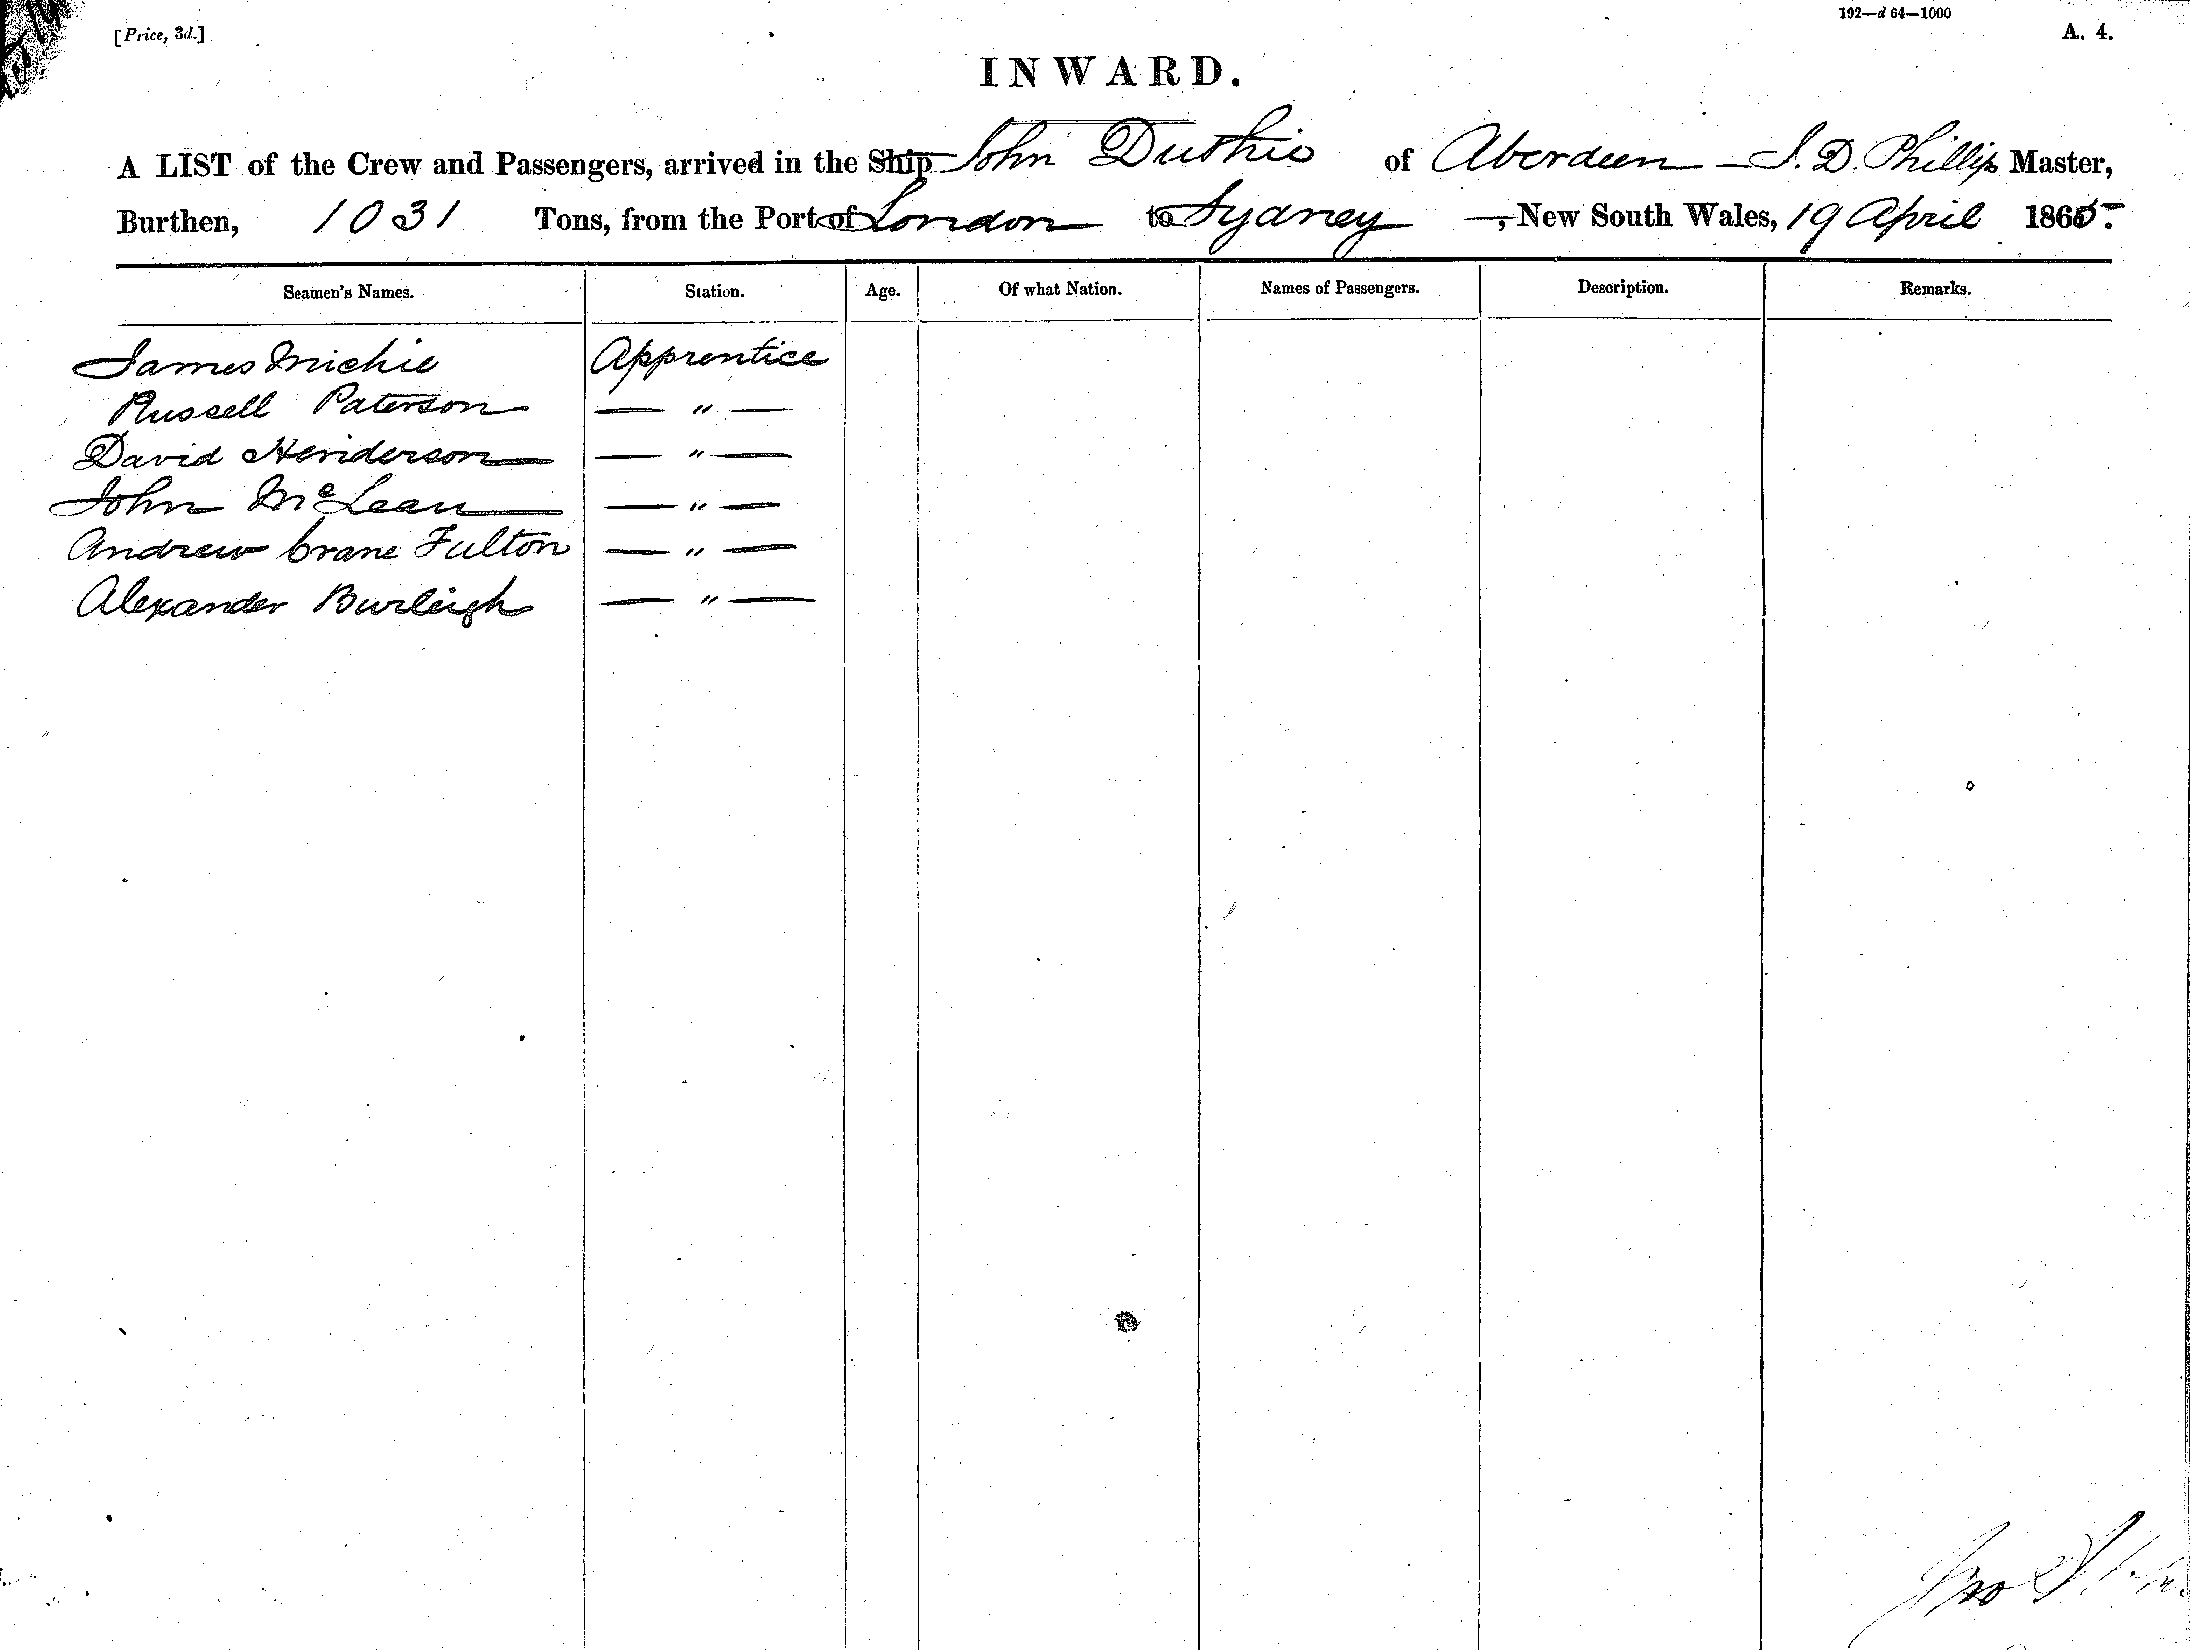 192—d 64—1000
[Price, 3d.]
A. 4.
INWARD.
A LIST of the Crew and Passengers, arrived in the Ship John Duthie of Aberdeen — J. D. Phillips Master,
Burthen, 1031 Tons, from the Port of London to Sydney —, New South Wales, 19 April 1865.
Seamen's Names. Station. Age. Of what Nation. Names of Passengers. Description. Remarks.
James Michie Apprentice
Russell Paterson — " —
David Henderson — " —
John McLean — " —
Andrew Crane Fulton — " —
Alexander Burleigh — " —
Jno